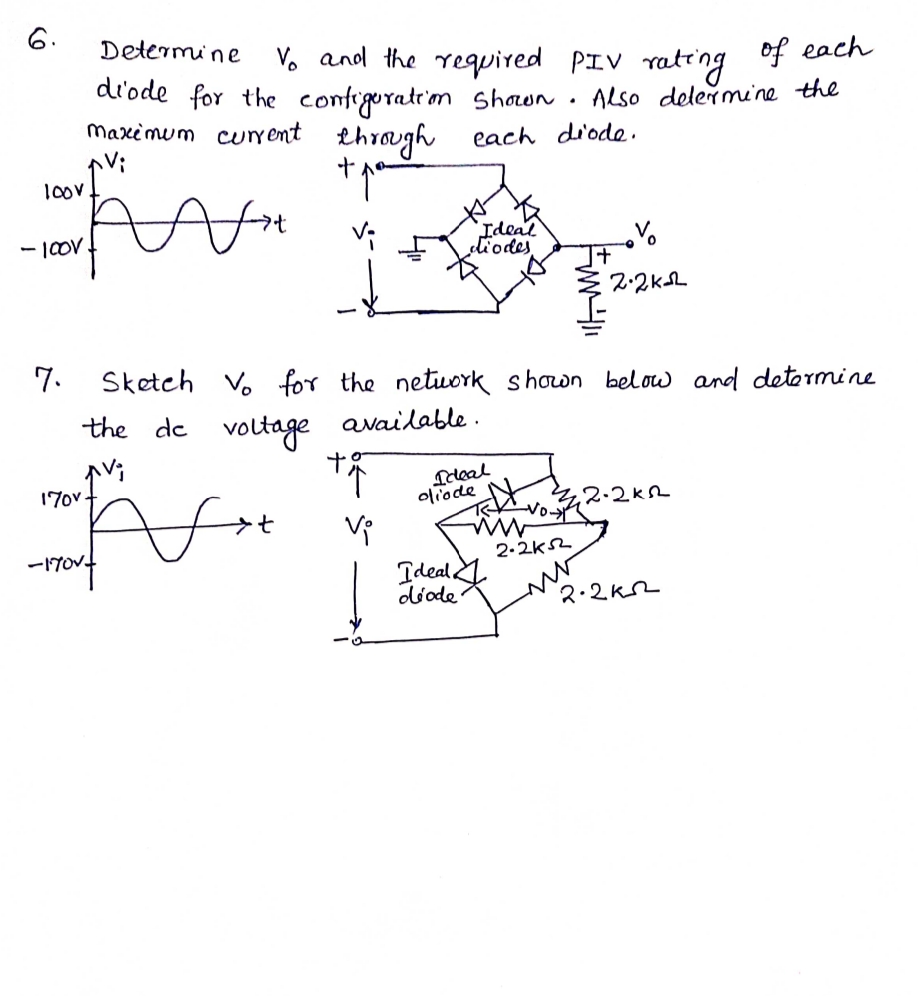 6. Determine Vo and the required PIV rating of each
diode for the configuration shown. Also determine the
maximum current through each diode.
Vi
100V
-100V
t
+
Vi
-
Ideal
diodes
Vo
+
2.2kΩ
-
7. Sketch Vo for the network shown below and determine
the dc voltage available.
Vi
170V
-170V
t
+
Vi
-
Ideal
diode
2.2KΩ
Vo
2.2KΩ
Ideal
diode
2.2KΩ